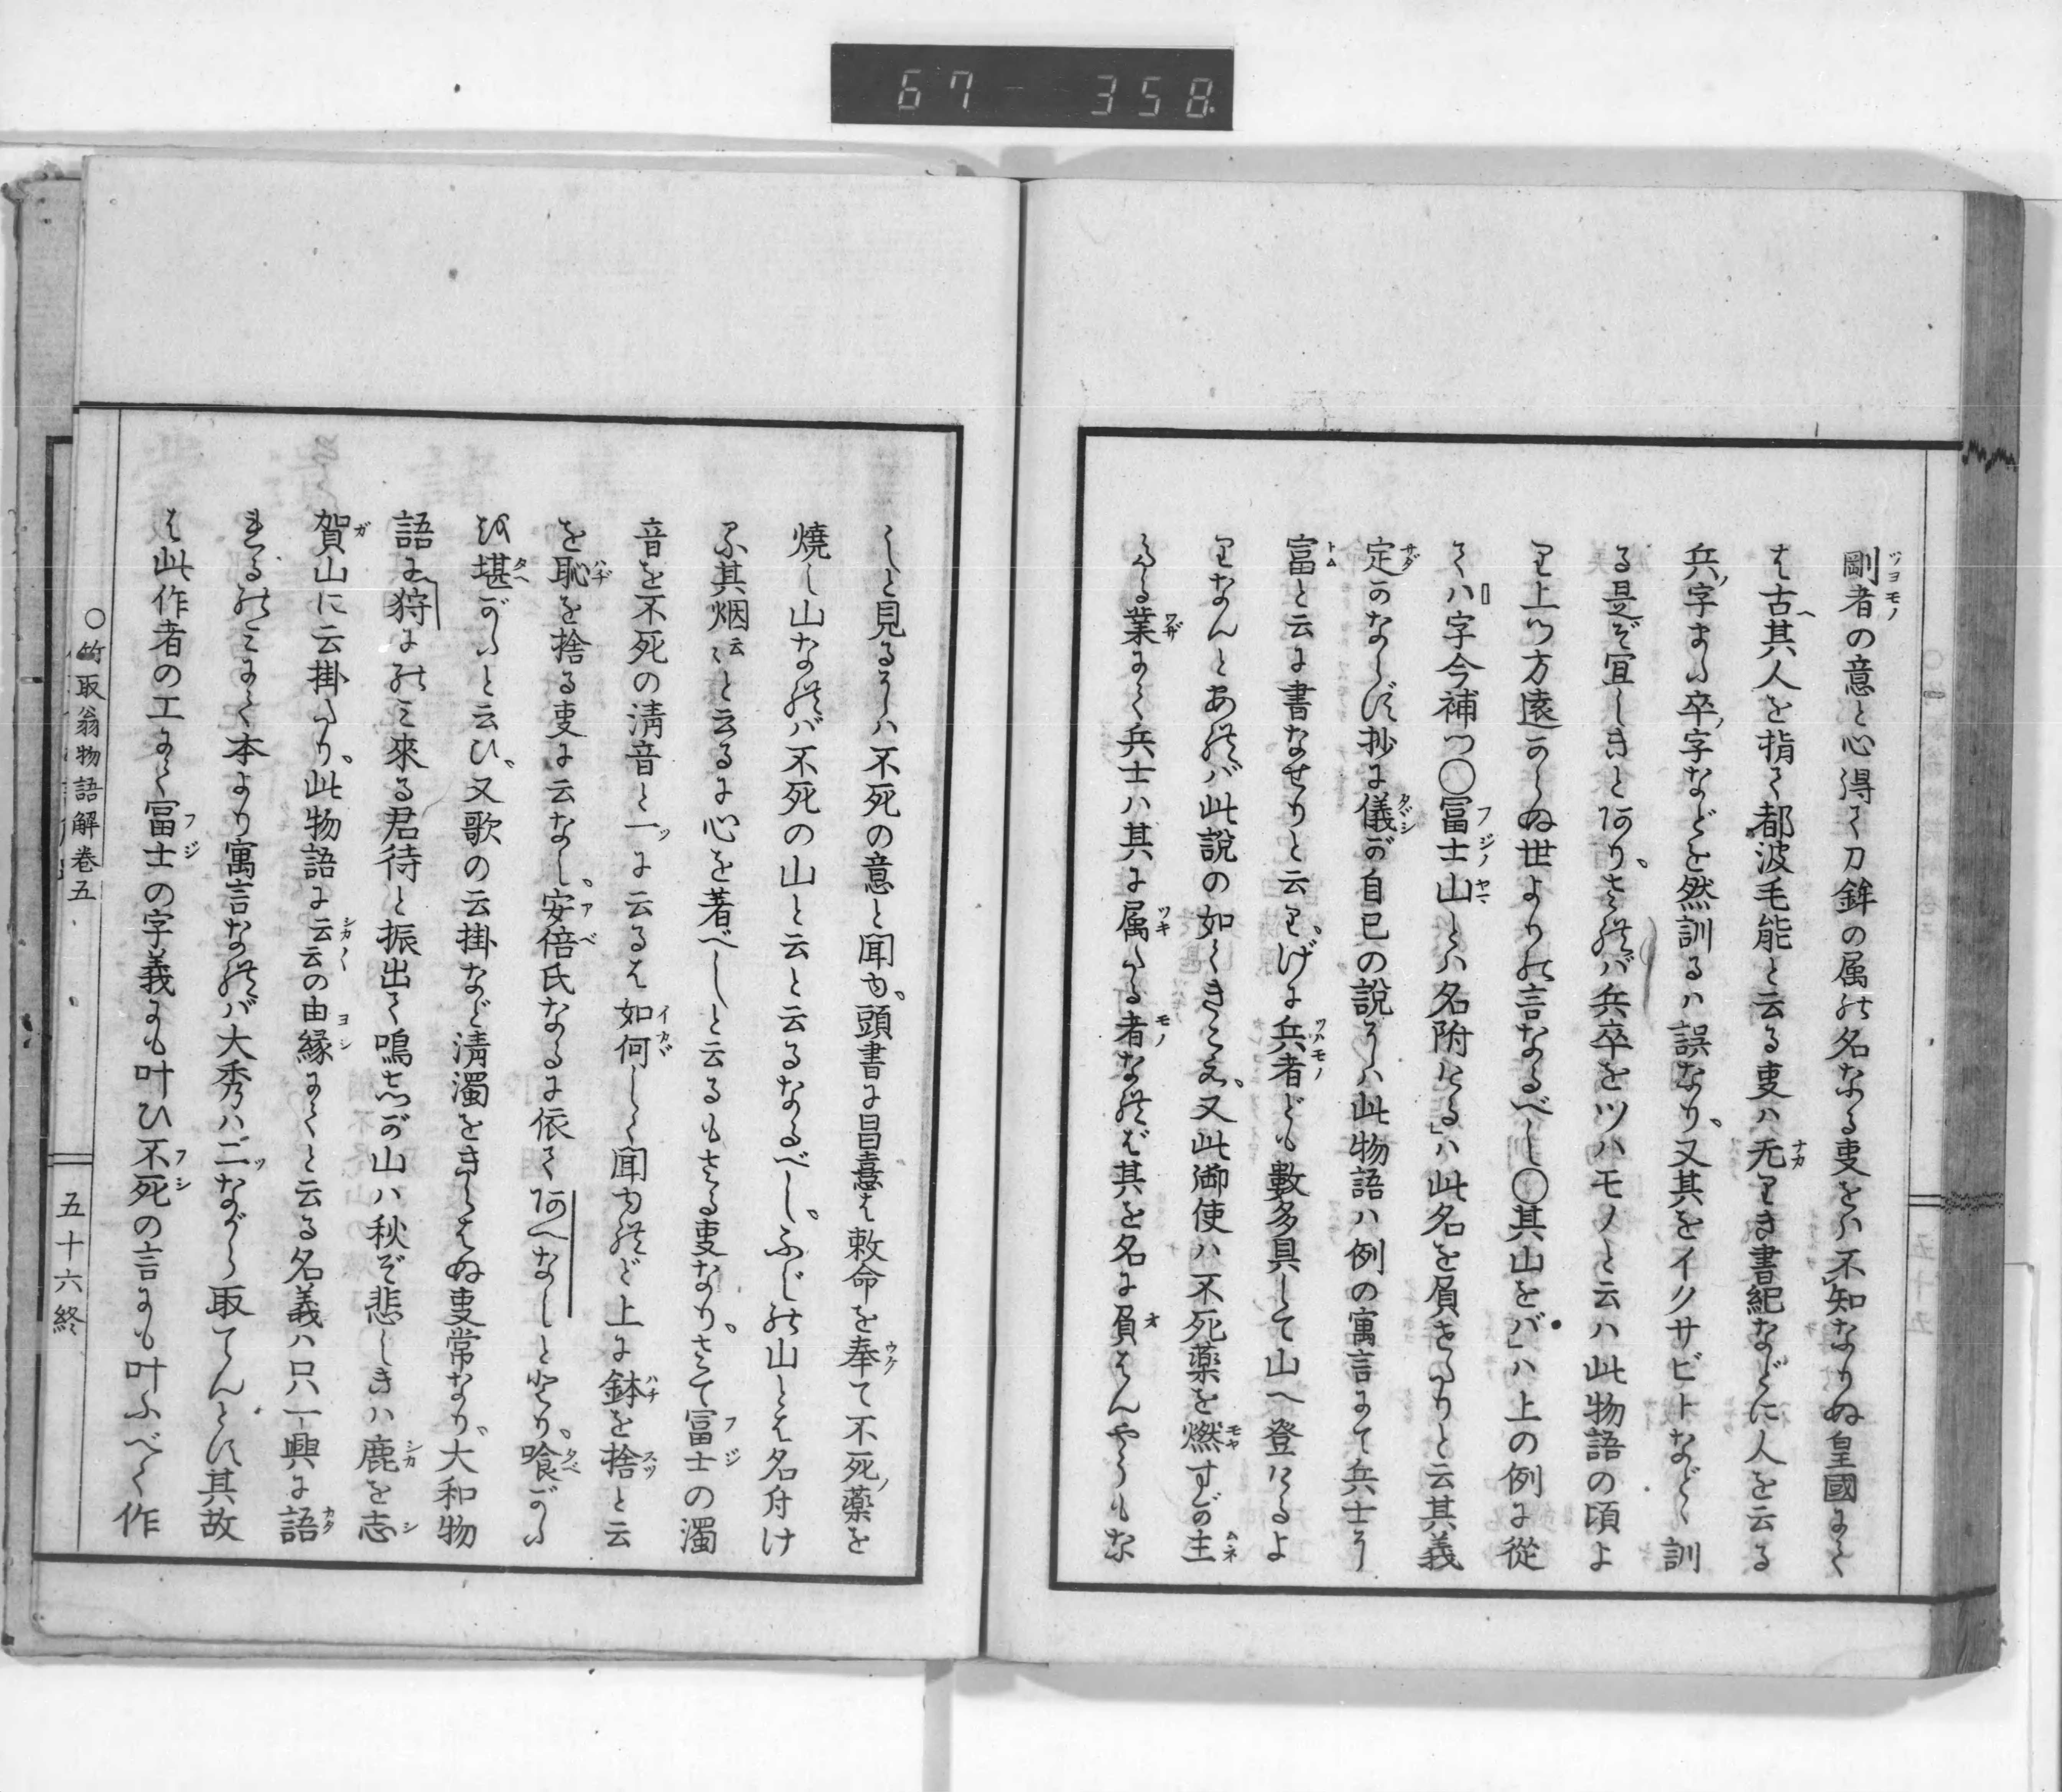 67-358
剛者の意と心得て刀鉾の属の名なる叓をハ不知なりぬ皇國にて
は古其人を指て都波毛能と云る叓ハ无りき書紀などに人を云る
兵字また卒字などを然訓るハ誤なり、又其をイクサビトなど訓
る是ぞ宜しきと何り、されバ兵卒をツハモノと云ハ此物語の頃よ
り上つ方遠からぬ世よりの言なるべし〇其山をバ」ハ上の例に從
てハ字今補つ〇冨士山とハ名附ける」ハ此名を負せたりと云其義
定かならず抄に儀が自己の說にハ此物語ハ例の寓言にて兵士に
富と云に書なせりと云り、げに兵者ども數多具して山へ登けるよ
りなんとあれバ此說の如くきこゆ、又此御使ハ不死薬を燃すが主
たる業にて兵士ハ其に属たる者なれば其を名に負はんやうもな
しと見るにハ不死の意と聞ゆ、頭書に昌憙は敕命を奉て不死ノ薬を
燒し山なれバ不死の山と云と云るなるべし、ふじの山とは名付け
ふ其烟云〻と云るに心を著べしと云るもさる叓なり、さて冨士の濁
音を不死の淸音と一ツに云るは如何しく聞ゆれど上に鉢を捨と云
を恥を捨る叓に云なし、安倍氏なるに依て何へなしと云り、喰がた
を堪がたと云ひ、又歌の云掛など淸濁をきらはぬ叓常なり、大和物
語に狩にのミ來る君待と振出て鳴志が山ハ秋ぞ悲しきハ鹿を志
賀山に云掛たり、此物語に云云の由縁にてと云る名義ハ只一興に語
れるのミにて本より寓言なれバ大秀ハ二ツながら取てんとす其故
は此作者の工にて冨士の字義にも叶ひ不死の言にも叶ふべく作
〇竹取翁物語解卷五
五十六終